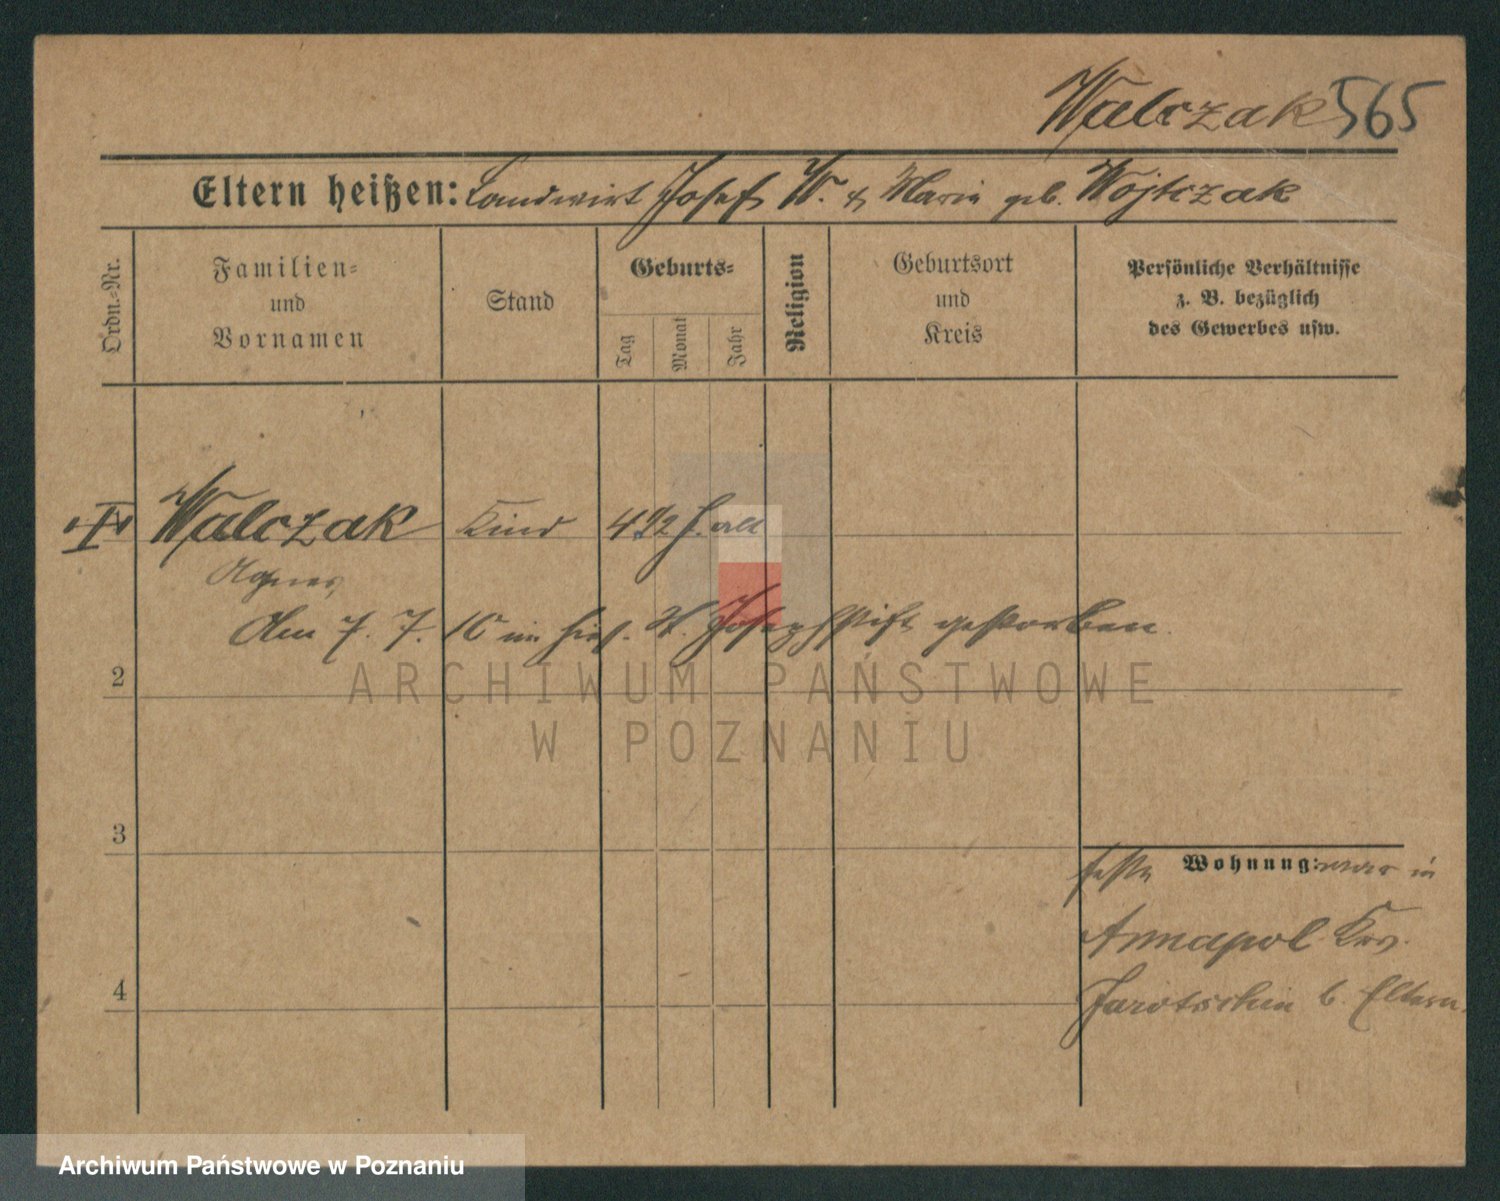 Walczak 565
Eltern heißen: Landwirt Josef W. & Maria geb. Wojtczak
Ordn.-Nr.
Familien-
und
Vornamen
Stand
Geburts-
Tag
Monat
Jahr
Religion
Geburtsort
und
Kreis
Persönliche Verhältnisse
z. B. bezüglich
des Gewerbes usw.
Walczak Kind 4 1/2 J. alt
Agnes,
Am 7. 7. 10 im hies. St. Josephstift gestorben.
2
3
4
feste Wohnung: war in
Annapol Krs.
Jarotschin b. Eltern.
ARCHIWUM PAŃSTWOWE
W POZNANIU
Archiwum Państwowe w Poznaniu